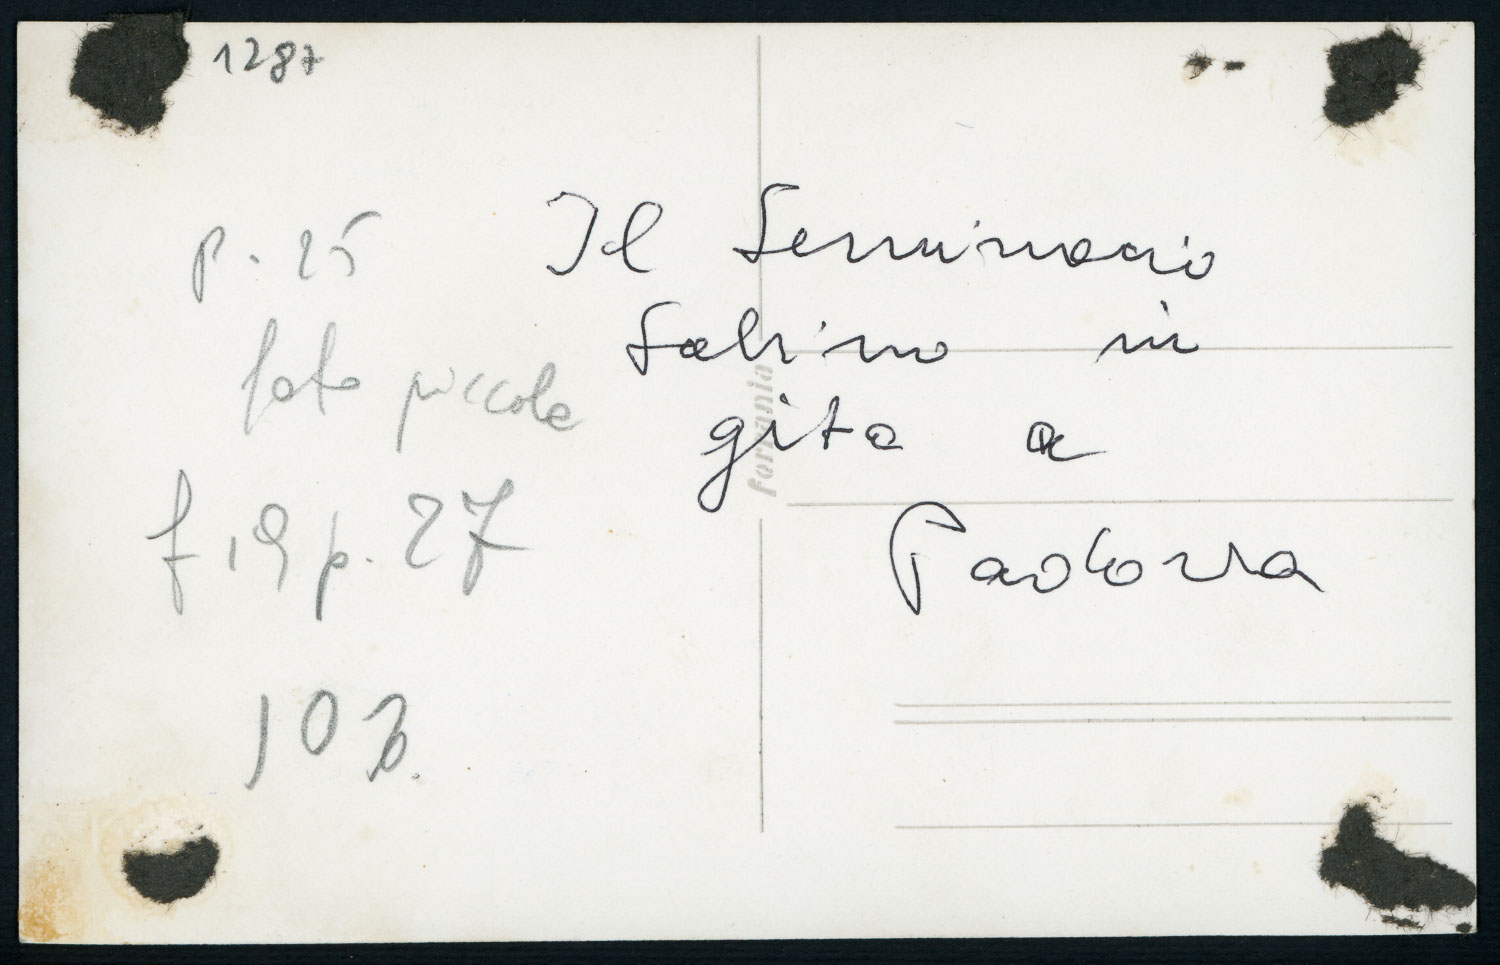 1287
p. 25
foto piccola
f 19 p. 27
103.
Il Seminario
Sabino in
gita a
Padova
ferrania